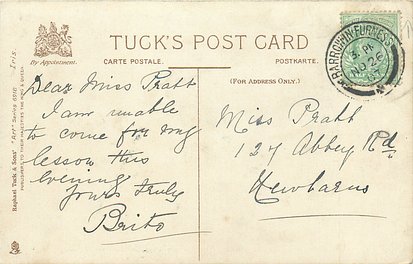 TUCK'S POST CARD
By Appointment.
CARTE POSTALE.
POSTKARTE.
(FOR ADDRESS ONLY.)
Raphael Tuck & Sons' "Art" Series 6106 Iris.
PUBLISHERS TO THEIR MAJESTIES THE KING & QUEEN
BARROW-IN-FURNESS
Dear Miss Pratt
I am unable
to come for my
lesson this
evening
Yours truly
Brito
Miss Pratt
127 Abbey Rd.
Newbarns